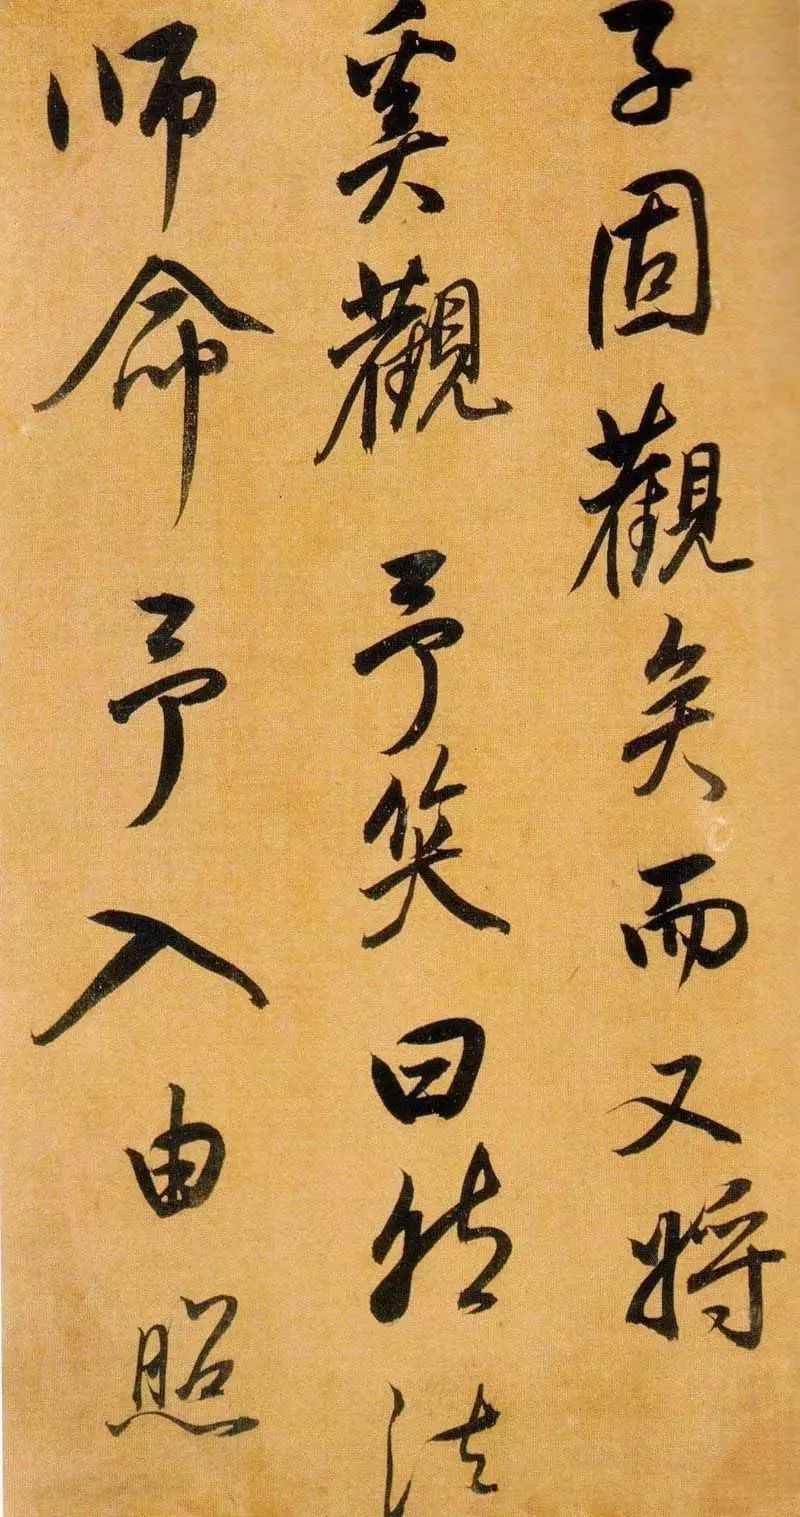 子固觀矣而又將
奚觀予笑曰然法
师命予入由照